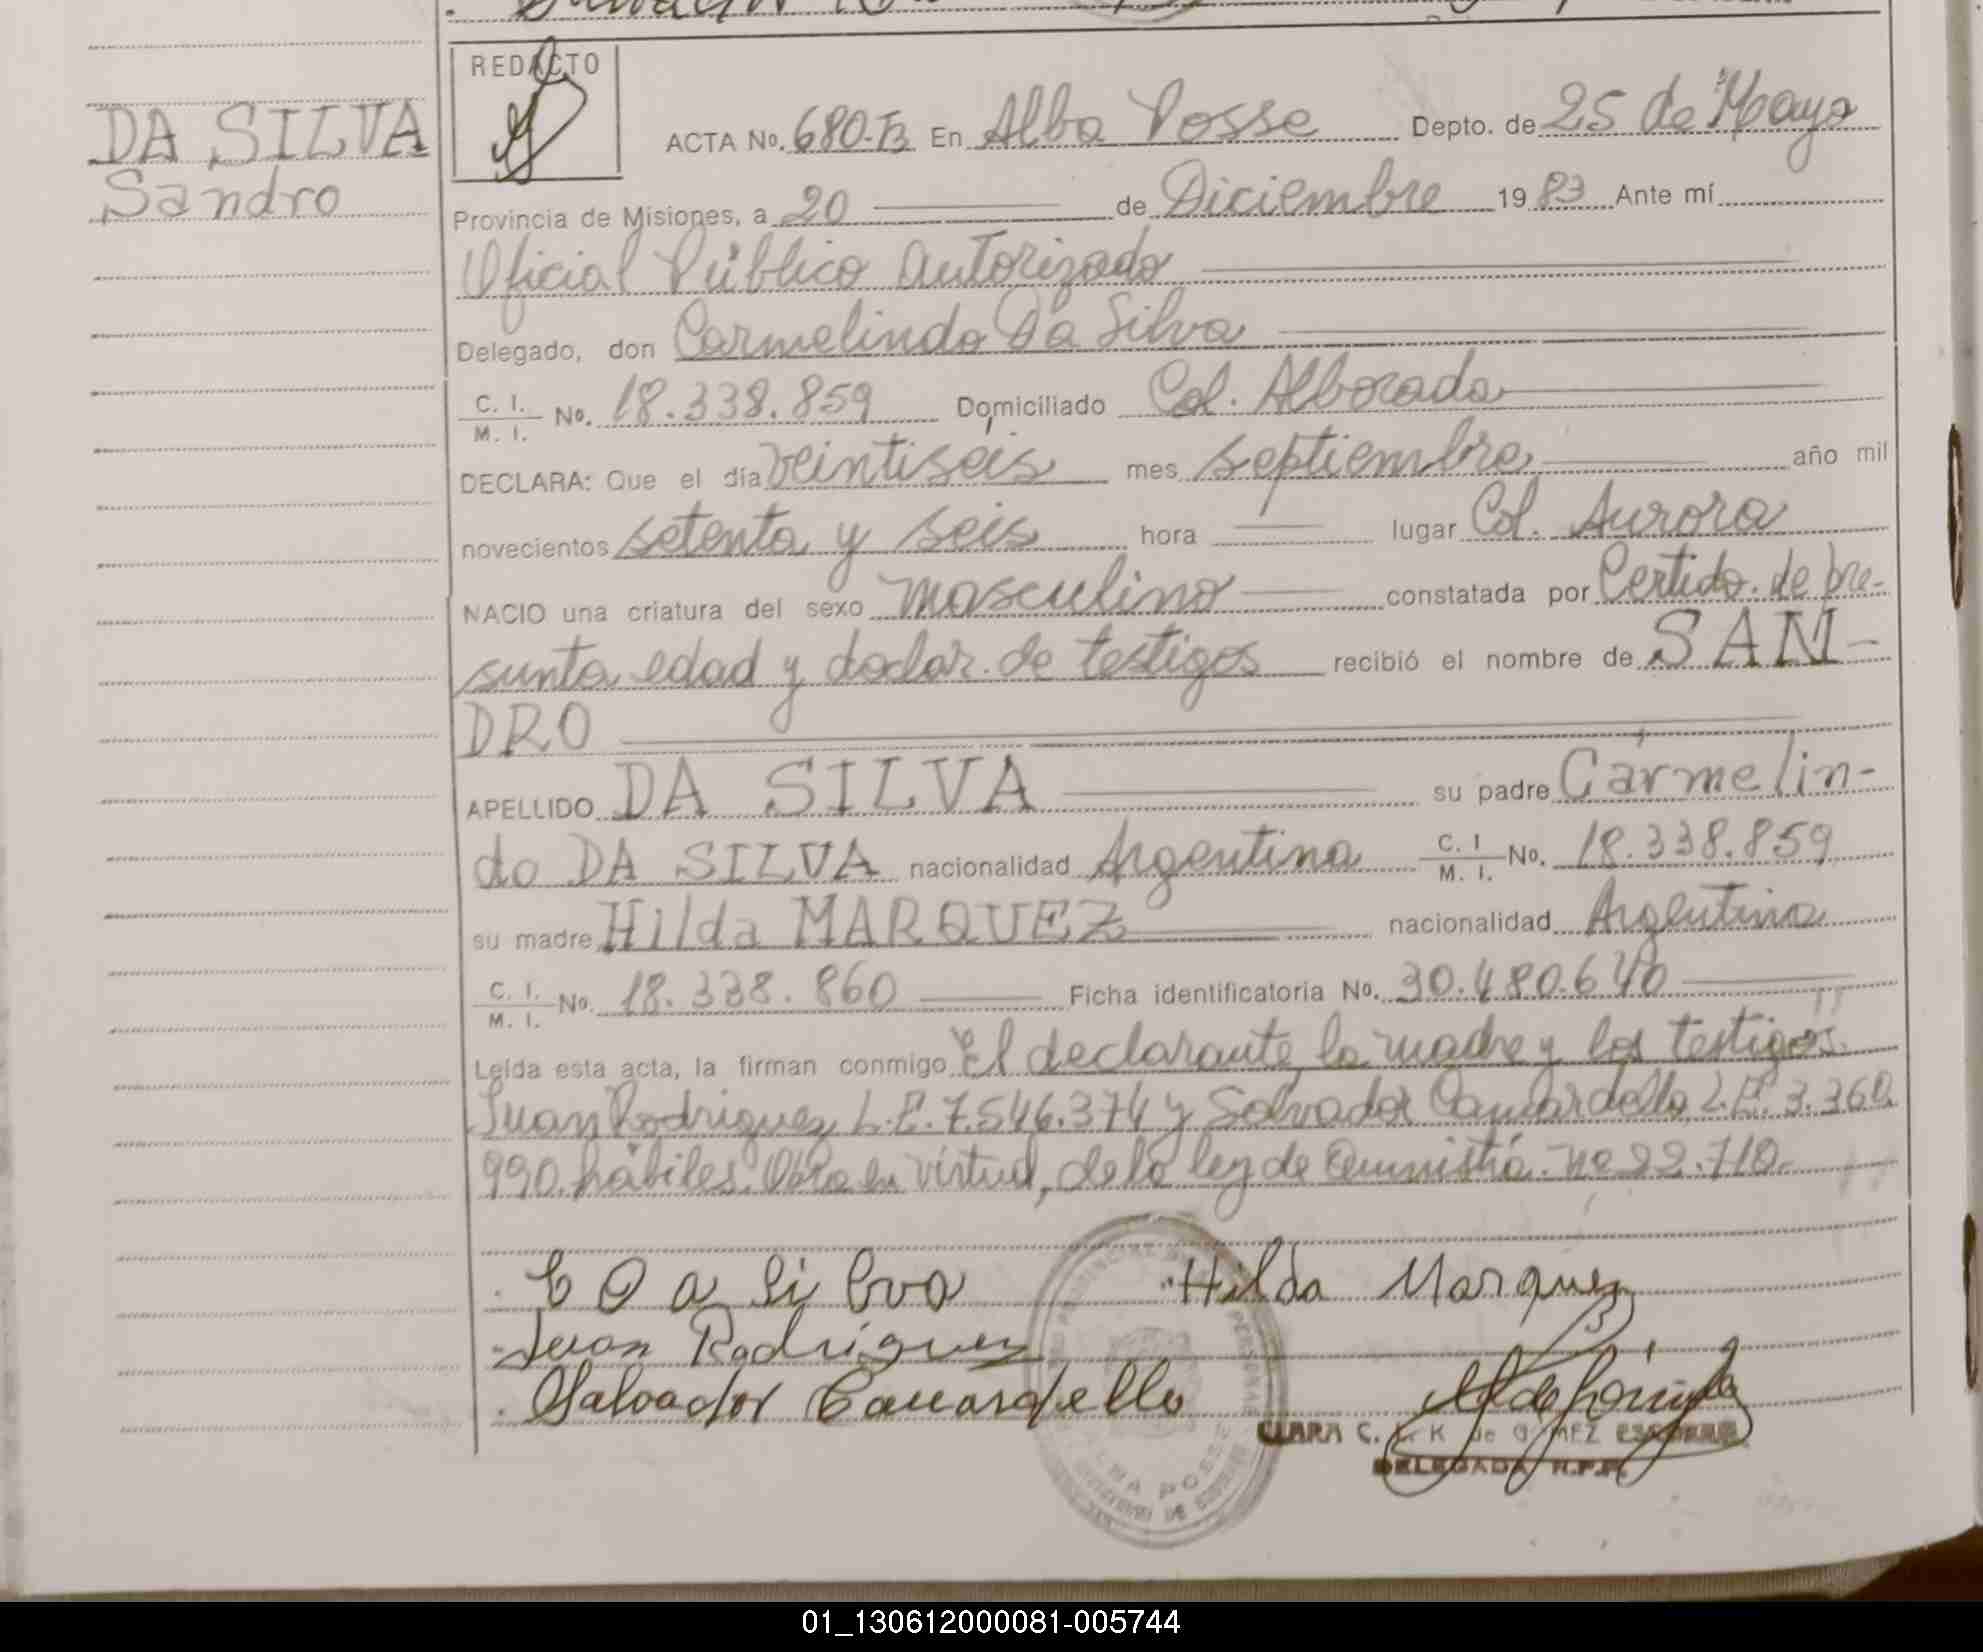 DA SILVA
Sandro
REDACTO
ACTA No. 680-B En Alba Posse Depto. de 25 de Mayo
Provincia de Misiones, a 20 de Diciembre 1983 Ante mí
Oficial Público Autorizado
Delegado, don Carmelindo Da Silva
C. I. / M. I. No. 18.338.859 Domiciliado Col. Alborada
DECLARA: Que el día veintiseis mes septiembre año mil
novecientos setenta y seis hora lugar Col. Aurora
NACIO una criatura del sexo masculino constatada por Certido. de pre-
sunta edad y declar. de testigos recibió el nombre de SAN-
DRO
APELLIDO DA SILVA su padre Carmelin-
do DA SILVA nacionalidad Argentina C. I / M. I. No. 18.338.859
su madre Hilda MARQUEZ nacionalidad Argentina
C. I. / M. I. No. 18.338.860 Ficha identificatoria No. 30.480.640
Leída esta acta, la firman conmigo El declarante, la madre y los testigos
Juan Rodriguez L.E. 7.546.374 y Salvador Camardello, L.E. 3.360.
990. hábiles. Obra en virtud, de la ley de Amnistía. Nº 22.710.
C Da Silva Hilda Marquez
Juan Rodriguez
Salvador Camardello
CLARA C. K de G MEZ
DELEGADA R.P.P.
ALBA POSSE
01_130612000081-005744